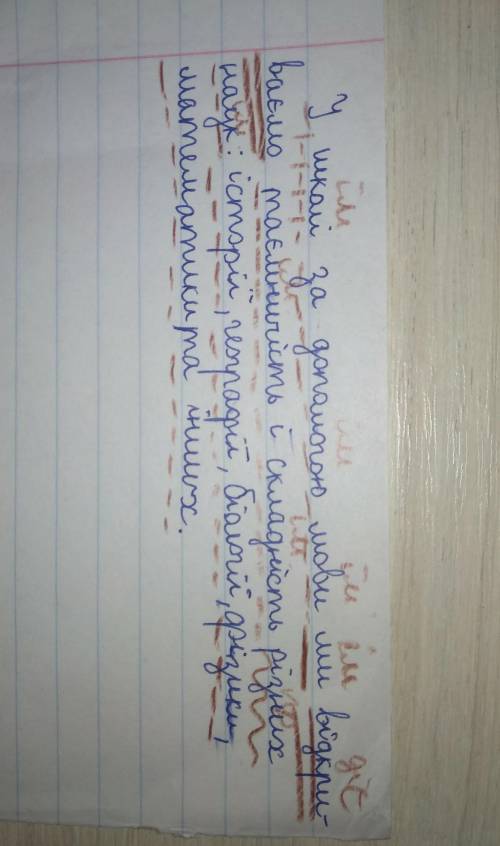 ім ім ім ім діє
У школі за допомогою мови ми відкри-
ім ім
ваємо таємничість і складність різних
наук: історії, географії, біології, фізики,
математики та інших.